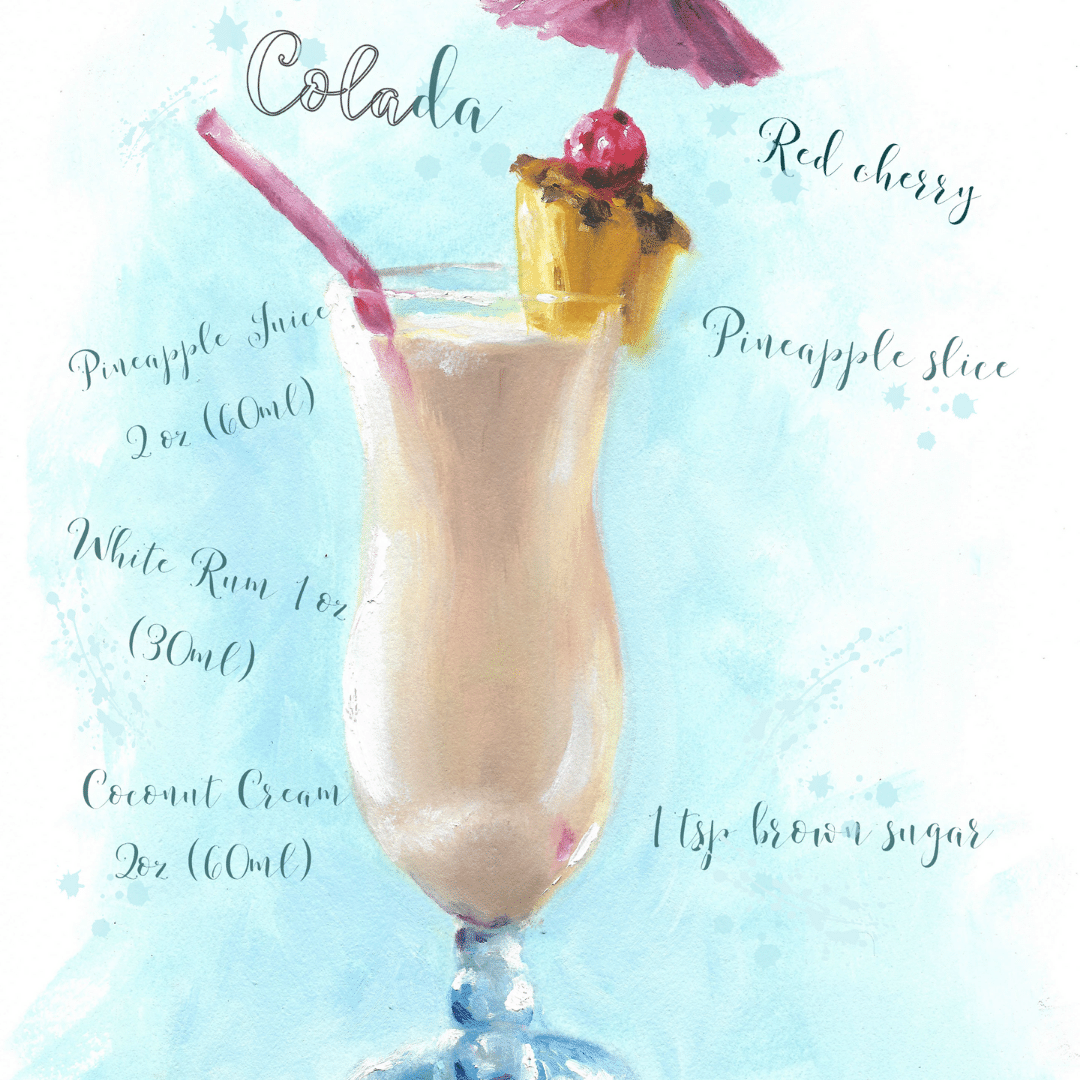 Colada
Red cherry
Pineapple Juice
2 oz (60ml)
Pineapple slice
White Rum 1 oz
(30ml)
Coconut Cream
2oz (60ml)
1 tsp brown sugar